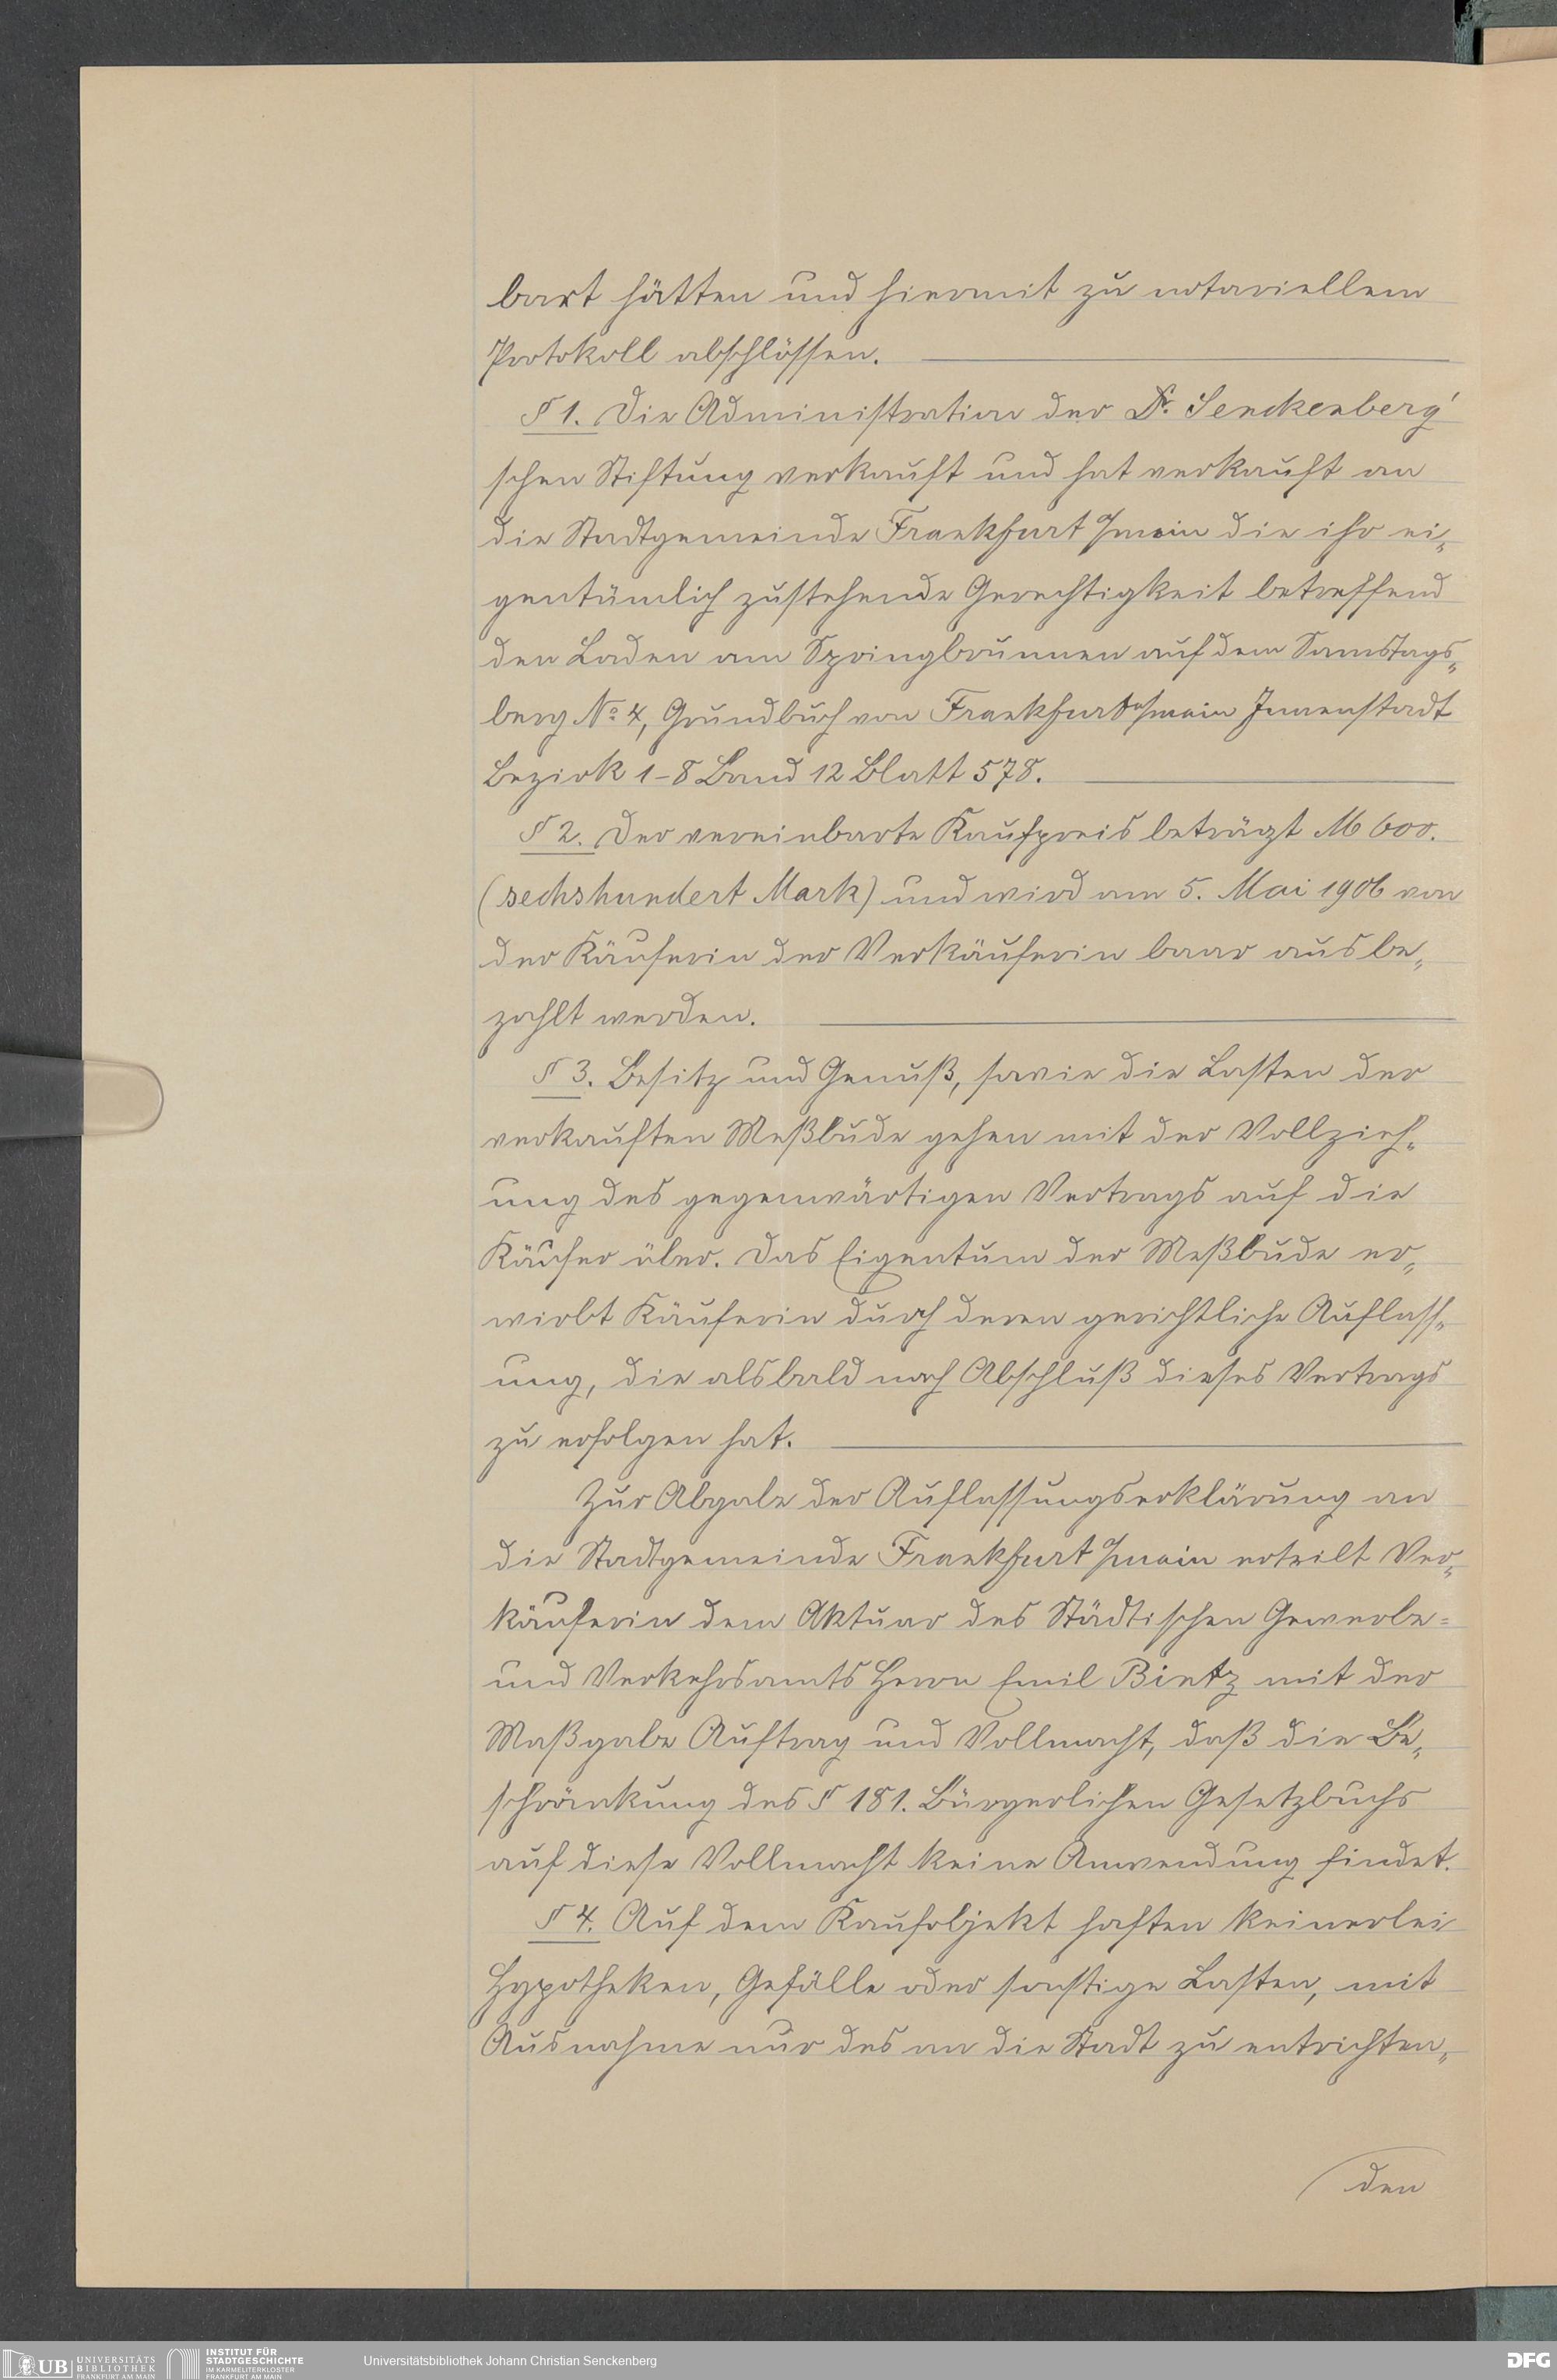 bart hätten und hiermit zu notariellem
Protokoll abschlössen.
§ 1. Die Administration der Dr. Senckenberg'
schen Stiftung verkauft und hat verkauft an
die Stadtgemeinde Frankfurt a/main die ihr ei„
gentümlich zustehende Gerechtigkeit betreffend
den Laden am Springbrunnen auf dem Samstags„
berg No 4, Grundbuch von Frankfurt a/main Innenstadt
Bezirk 1-8 Band 12 Blatt 578.
§ 2. Der vereinbarte Kaufpreis beträgt M 600.
(sechshundert Mark) und wird am 5. Mai 1906 von
der Käuferin der Verkäuferin baar ausbe„
zahlt werden.
§ 3. Besitz und Genuß, sowie die Lasten der
verkauften Meßbude gehen mit der Vollzieh„
ung des gegenwärtigen Vertrags auf die
Käufer über. Das Eigentum der Meßbude er„
wirbt Käuferin durch deren gerichtliche Auflass„
ung, die alsbald nach Abschluß dieses Vertrags
zu erfolgen hat.
Zur Abgabe der Auflassungserklärung an
die Stadtgemeinde Frankfurt a/main erteilt Ver„
käuferin dem Aktuar des Städtischen Gewerbe=
und Verkehrsamts Herrn Emil Bintz mit der
Maßgabe Auftrag und Vollmacht, daß die Be„
schränkung des § 181. Bürgerlichen Gesetzbuchs
auf diese Vollmacht keine Anwendung findet.
§ 4. Auf dem Kaufobjekt haften keinerlei
Hypotheken, Gefälle oder sonstige Lasten, mit
Ausnahme nur des an die Stadt zu entrichten„
den
UB UNIVERSITÄTS BIBLIOTHEK FRANKFURT AM MAIN
INSTITUT FÜR STADTGESCHICHTE IM KARMELITERKLOSTER FRANKFURT AM MAIN
Universitätsbibliothek Johann Christian Senckenberg
DFG